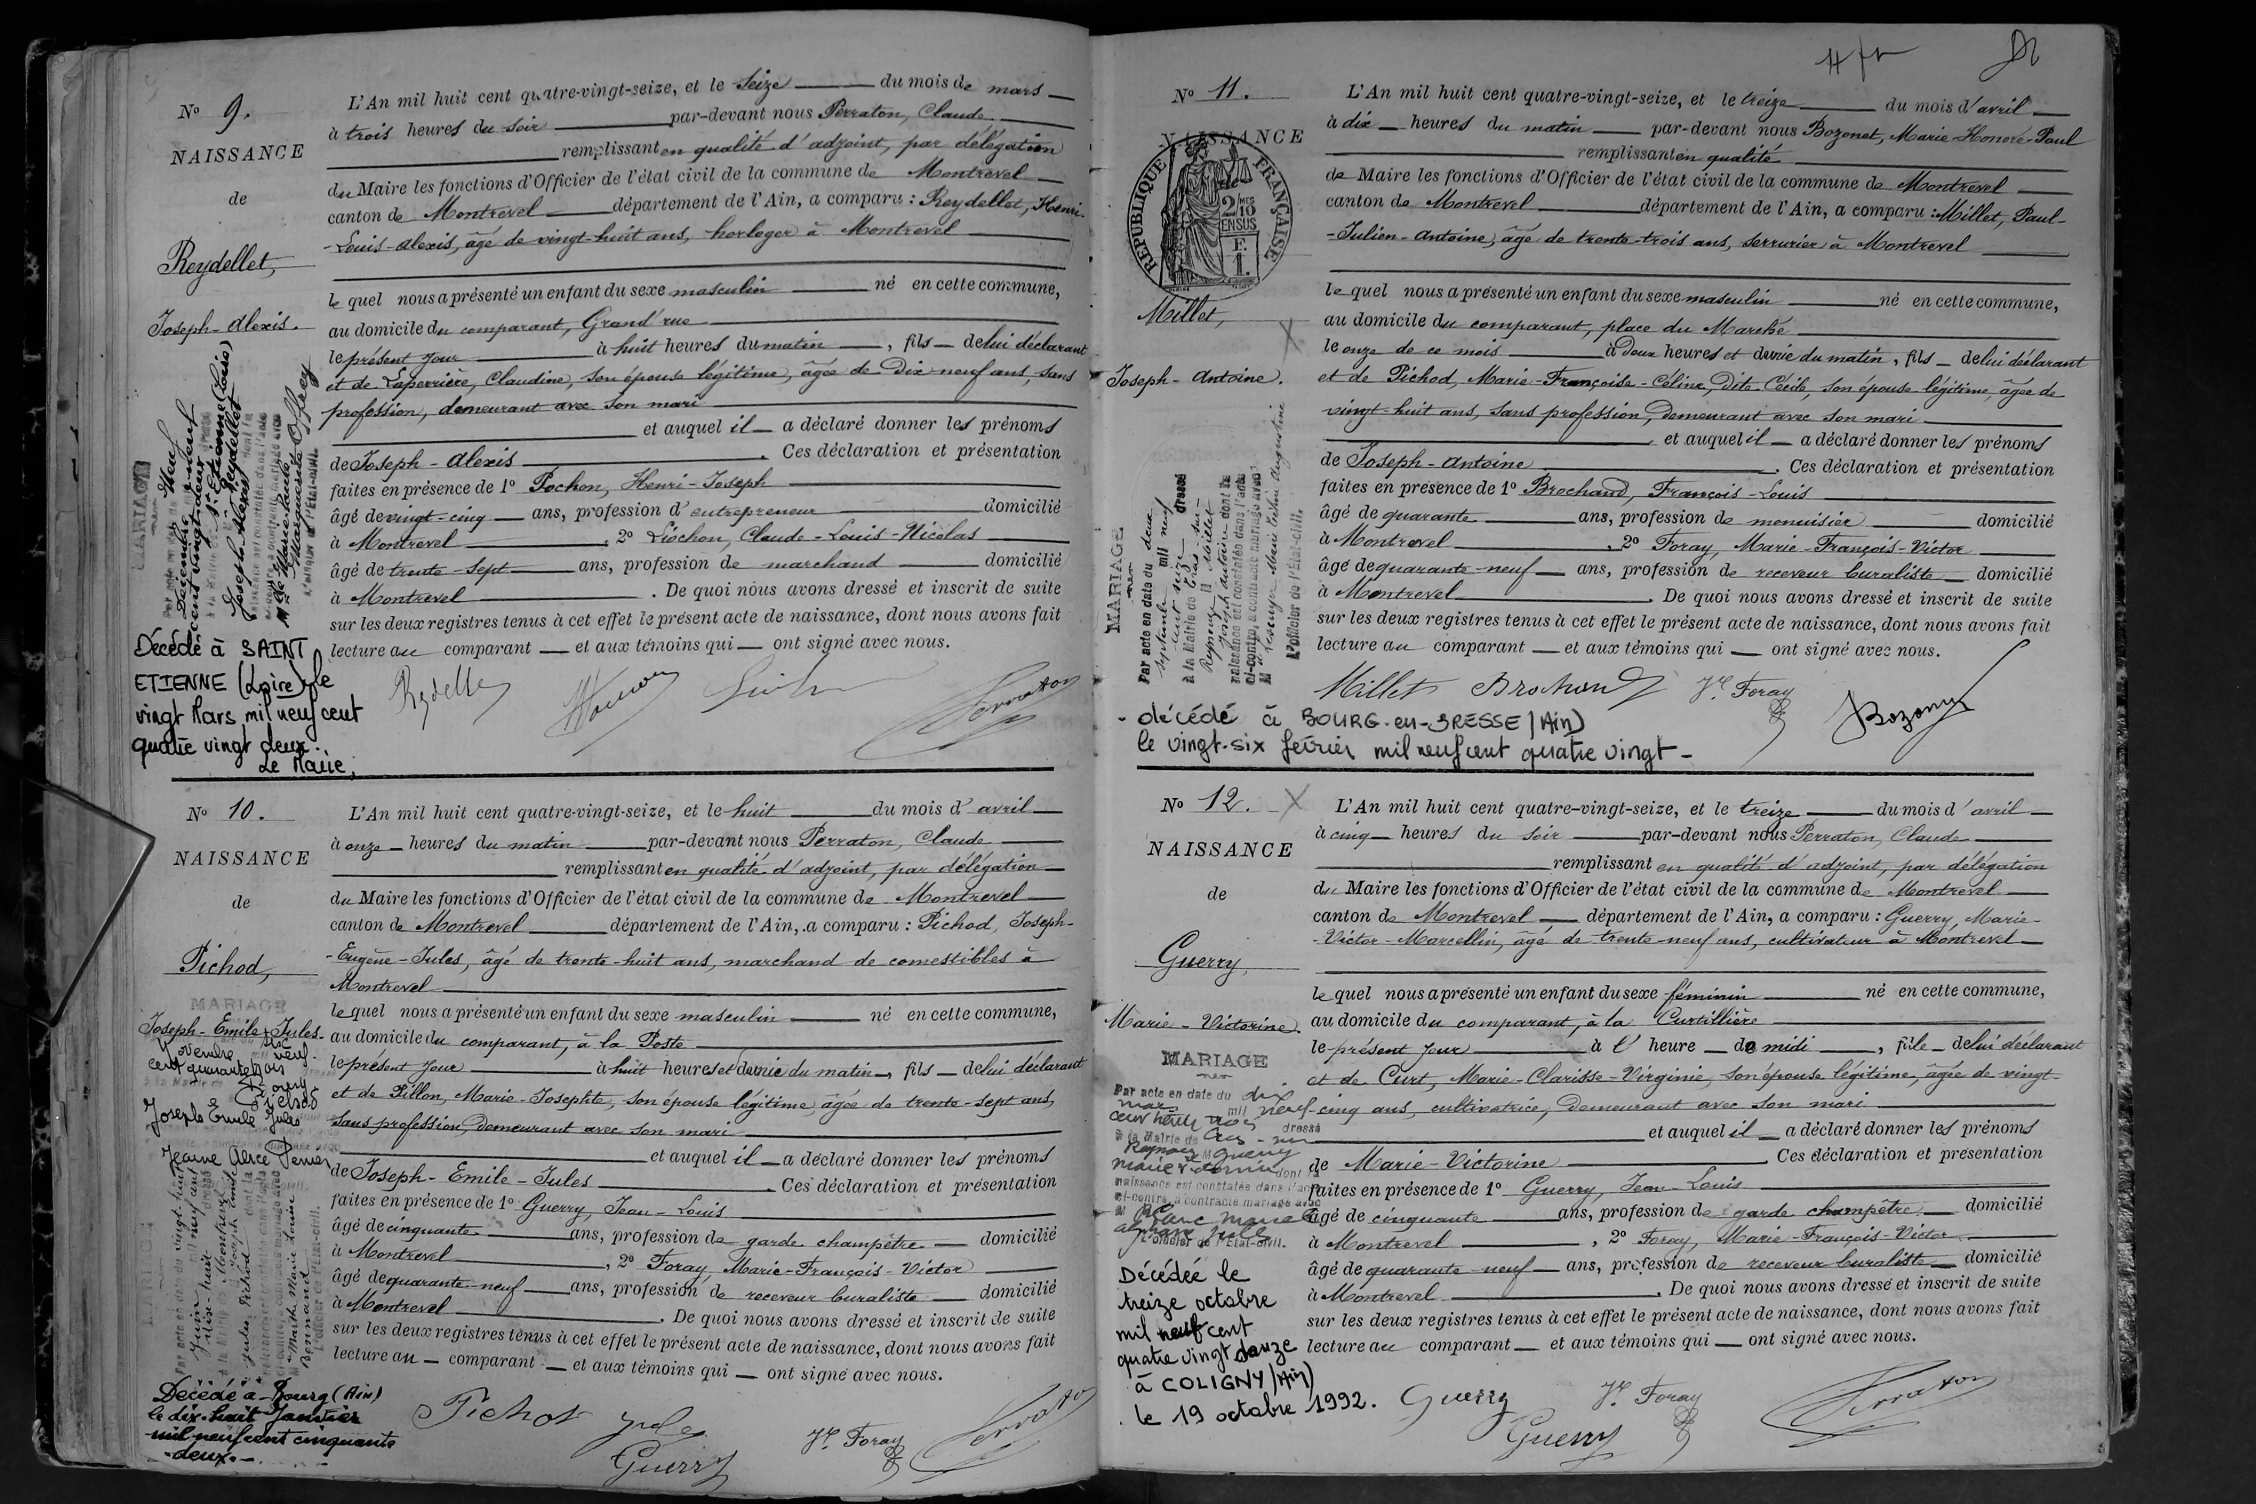 Nº 9.
NAISSANCE
de
Reydellet,
Joseph-Alexis.
L'An mil huit cent quatre-vingt-seize, et le seize du mois de mars
à trois heures du soir par-devant nous Perraton, Claude
remplissant en qualité d'adjoint, par délégation
du Maire les fonctions d'Officier de l'état civil de la commune de Montrevel
canton de Montrevel département de l'Ain, a comparu : Reydellet, Henri-
-Louis-Alexis, âgé de vingt-huit ans, horloger à Montrevel
le quel nous a présenté un enfant du sexe masculin né en cette commune,
au domicile du comparant, Grand'rue
le présent jour à huit heures du matin, fils de lui déclarant
et de Laperrière, Claudine, son épouse légitime, âgée de Dix-neuf ans, sans
profession, demeurant avec son mari
et auquel il a déclaré donner les prénoms
de Joseph-Alexis. Ces déclaration et présentation
faites en présence de 1º Pochon, Henri-Joseph
âgé de vingt-cinq ans, profession d'entrepreneur domicilié
à Montrevel, 2º Liochon, Claude-Louis-Nicolas
âgé de trente-sept ans, profession de marchand domicilié
à Montrevel. De quoi nous avons dressé et inscrit de suite
sur les deux registres tenus à cet effet le présent acte de naissance, dont nous avons fait
lecture au comparant et aux témoins qui ont signé avec nous.
MARIAGE
Décembre
cent vingt-deux
St Etienne (Loire)
Reydellet
Joseph Alexis
Marie-Louise
Marguerite Offrey
L'officier de l'Etat-civil.
Décédé à SAINT
ETIENNE (Loire) le
vingt Mars mil neuf cent
quatre vingt deux.
Le Maire,
Perraton
Nº 10.
NAISSANCE
de
Pichod,
Joseph-Emile-Jules.
L'An mil huit cent quatre-vingt-seize, et le huit du mois d'avril
à onze heures du matin par-devant nous Perraton, Claude
remplissant en qualité d'adjoint, par délégation
du Maire les fonctions d'Officier de l'état civil de la commune de Montrevel
canton de Montrevel département de l'Ain, a comparu : Pichod, Joseph-
-Eugène-Jules, âgé de trente-huit ans, marchand de comestibles à
Montrevel
le quel nous a présenté un enfant du sexe masculin né en cette commune,
au domicile du comparant, à la Poste
le présent jour à huit heures et demie du matin, fils de lui déclarant
et de Pillon, Marie-Josephte, son épouse légitime, âgée de trente-sept ans,
sans profession, demeurant avec son mari
et auquel il a déclaré donner les prénoms
de Joseph-Emile-Jules. Ces déclaration et présentation
faites en présence de 1º Guerry, Jean-Louis
âgé de cinquante ans, profession de garde champêtre domicilié
à Montrevel, 2º Foray, Marie-François-Victor
âgé de quarante-neuf ans, profession de receveur buraliste domicilié
à Montrevel. De quoi nous avons dressé et inscrit de suite
sur les deux registres tenus à cet effet le présent acte de naissance, dont nous avons fait
lecture au comparant et aux témoins qui ont signé avec nous.
MARIAGE
neuf
cent quarante trois
Joseph Emile Jules
Jeanne Alice
Décédé à Bourg (Ain)
le dix-huit Janvier
mil neuf cent cinquante
deux.
Pichod Jules
Guerry
Vr Foray
Perraton
Nº 11.
NAISSANCE
REPUBLIQUE FRANÇAISE
Millet,
Joseph-Antoine.
L'An mil huit cent quatre-vingt-seize, et le treize du mois d'avril
à dix heures du matin par-devant nous Bozonet, Marie-Honoré-Paul
remplissant en qualité
de Maire les fonctions d'Officier de l'état civil de la commune de Montrevel
canton de Montrevel département de l'Ain, a comparu : Millet, Paul-
-Julien-Antoine, âgé de trente-trois ans, serrurier à Montrevel
le quel nous a présenté un enfant du sexe masculin né en cette commune,
au domicile du comparant, place du Marché
le onze de ce mois à deux heures et demie du matin, fils de lui déclarant
et de Pichod, Marie-Françoise-Céline, dite Cécile, son épouse légitime, âgée de
vingt-huit ans, sans profession, demeurant avec son mari
et auquel il a déclaré donner les prénoms
de Joseph-Antoine. Ces déclaration et présentation
faites en présence de 1º Brochand, François-Louis
âgé de quarante ans, profession de menuisier domicilié
à Montrevel, 2º Foray, Marie-François-Victor
âgé de quarante-neuf ans, profession de receveur buraliste domicilié
à Montrevel. De quoi nous avons dressé et inscrit de suite
sur les deux registres tenus à cet effet le présent acte de naissance, dont nous avons fait
lecture au comparant et aux témoins qui ont signé avec nous.
MARIAGE
Par acte en date du deux
septembre mil neuf
dressé
à la Mairie de Cras-sur-
Reyssouze M Millet
Joseph Antoine dont la
naissance est constatée dans l'acte
ci-contre, a contracté mariage avec
L'Officier de l'Etat-civil.
Millet Brochand Vr Foray Bozonet
- décédé à BOURG-en-BRESSE (Ain)
le vingt-six février mil neuf cent quatre vingt -
Nº 12.
NAISSANCE
de
Guerry,
Marie-Victorine.
L'An mil huit cent quatre-vingt-seize, et le treize du mois d'avril
à cinq heures du soir par-devant nous Perraton, Claude
remplissant en qualité d'adjoint, par délégation
du Maire les fonctions d'Officier de l'état civil de la commune de Montrevel
canton de Montrevel département de l'Ain, a comparu : Guerry, Marie-
-Victor-Marcellin, âgé de trente-neuf ans, cultivateur à Montrevel
le quel nous a présenté un enfant du sexe féminin né en cette commune,
au domicile du comparant, à la Curtillière
le présent jour à l'heure de midi, fille de lui déclarant
et de Curt, Marie-Clarisse-Virginie, son épouse légitime, âgée de vingt-
-cinq ans, cultivatrice, demeurant avec son mari
et auquel il a déclaré donner les prénoms
de Marie-Victorine. Ces déclaration et présentation
faites en présence de 1º Guerry, Jean-Louis
âgé de cinquante ans, profession de garde champêtre domicilié
à Montrevel, 2º Foray, Marie-François-Victor
âgé de quarante-neuf ans, profession de receveur buraliste domicilié
à Montrevel. De quoi nous avons dressé et inscrit de suite
sur les deux registres tenus à cet effet le présent acte de naissance, dont nous avons fait
lecture au comparant et aux témoins qui ont signé avec nous.
MARIAGE
Par acte en date du dix
mars mil neuf
cent trente trois dressé
à la Mairie de Cras-sur
Reyssouze M Guerry
Marie Victorine dont la
naissance est constatée dans l'acte
ci-contre, a contracté mariage avec
L'Officier de l'Etat-civil.
Décédée le
treize octobre
mil neuf cent
quatre vingt douze
à COLIGNY (Ain)
le 19 octobre 1992.
Guerry
Vr Foray
Perraton
Guerry